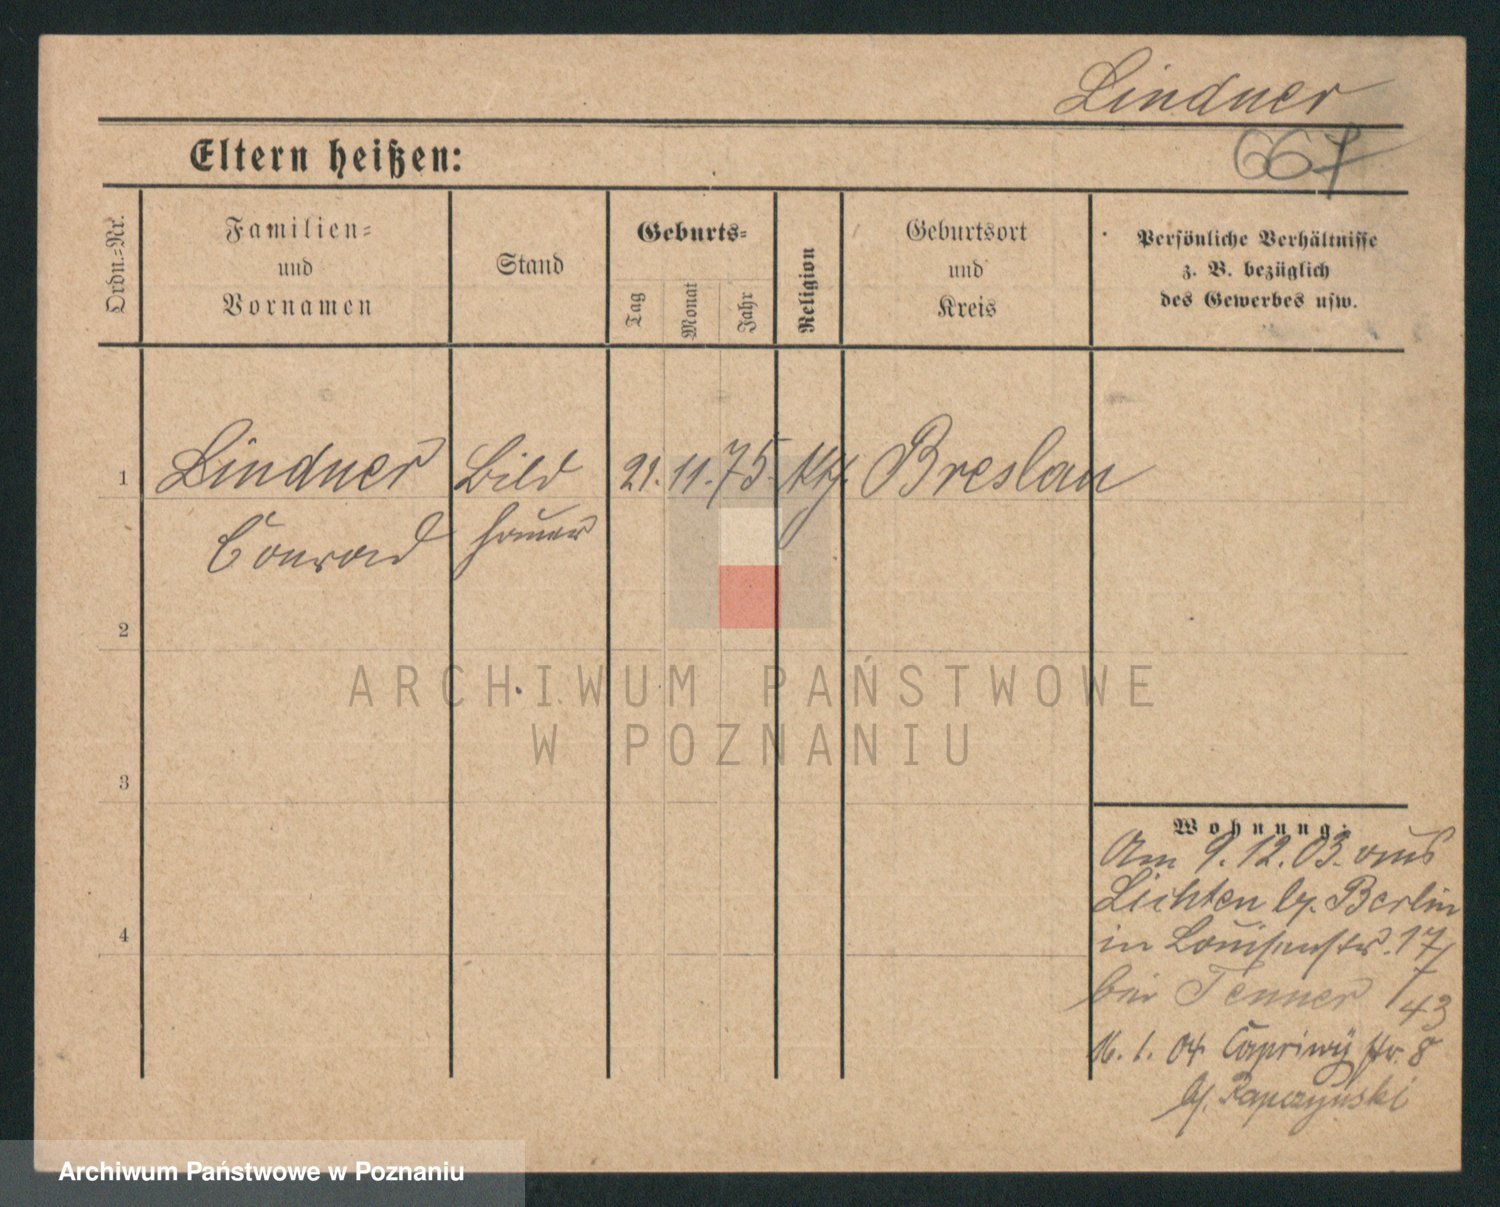 Lindner
667
Eltern heißen:
Ordn.-Nr.
Familien-
und
Vornamen
Stand
Geburts-
Tag
Monat
Jahr
Religion
Geburtsort
und
Kreis
Persönliche Verhältnisse
z. B. bezüglich
des Gewerbes usw.
1 Lindner Bild 21. 11. 75. Kth. Breslau
Conrad hauer
2
3
4
ARCHIWUM PAŃSTWOWE
W POZNANIU
Wohnung:
Am 9. 12. 03. aus
Lichten bg. Berlin
in Louisenstr. 17/
bei Tenner 43
16. 1. 04 Capriwy str. 8
Archiwum Państwowe w Poznaniu